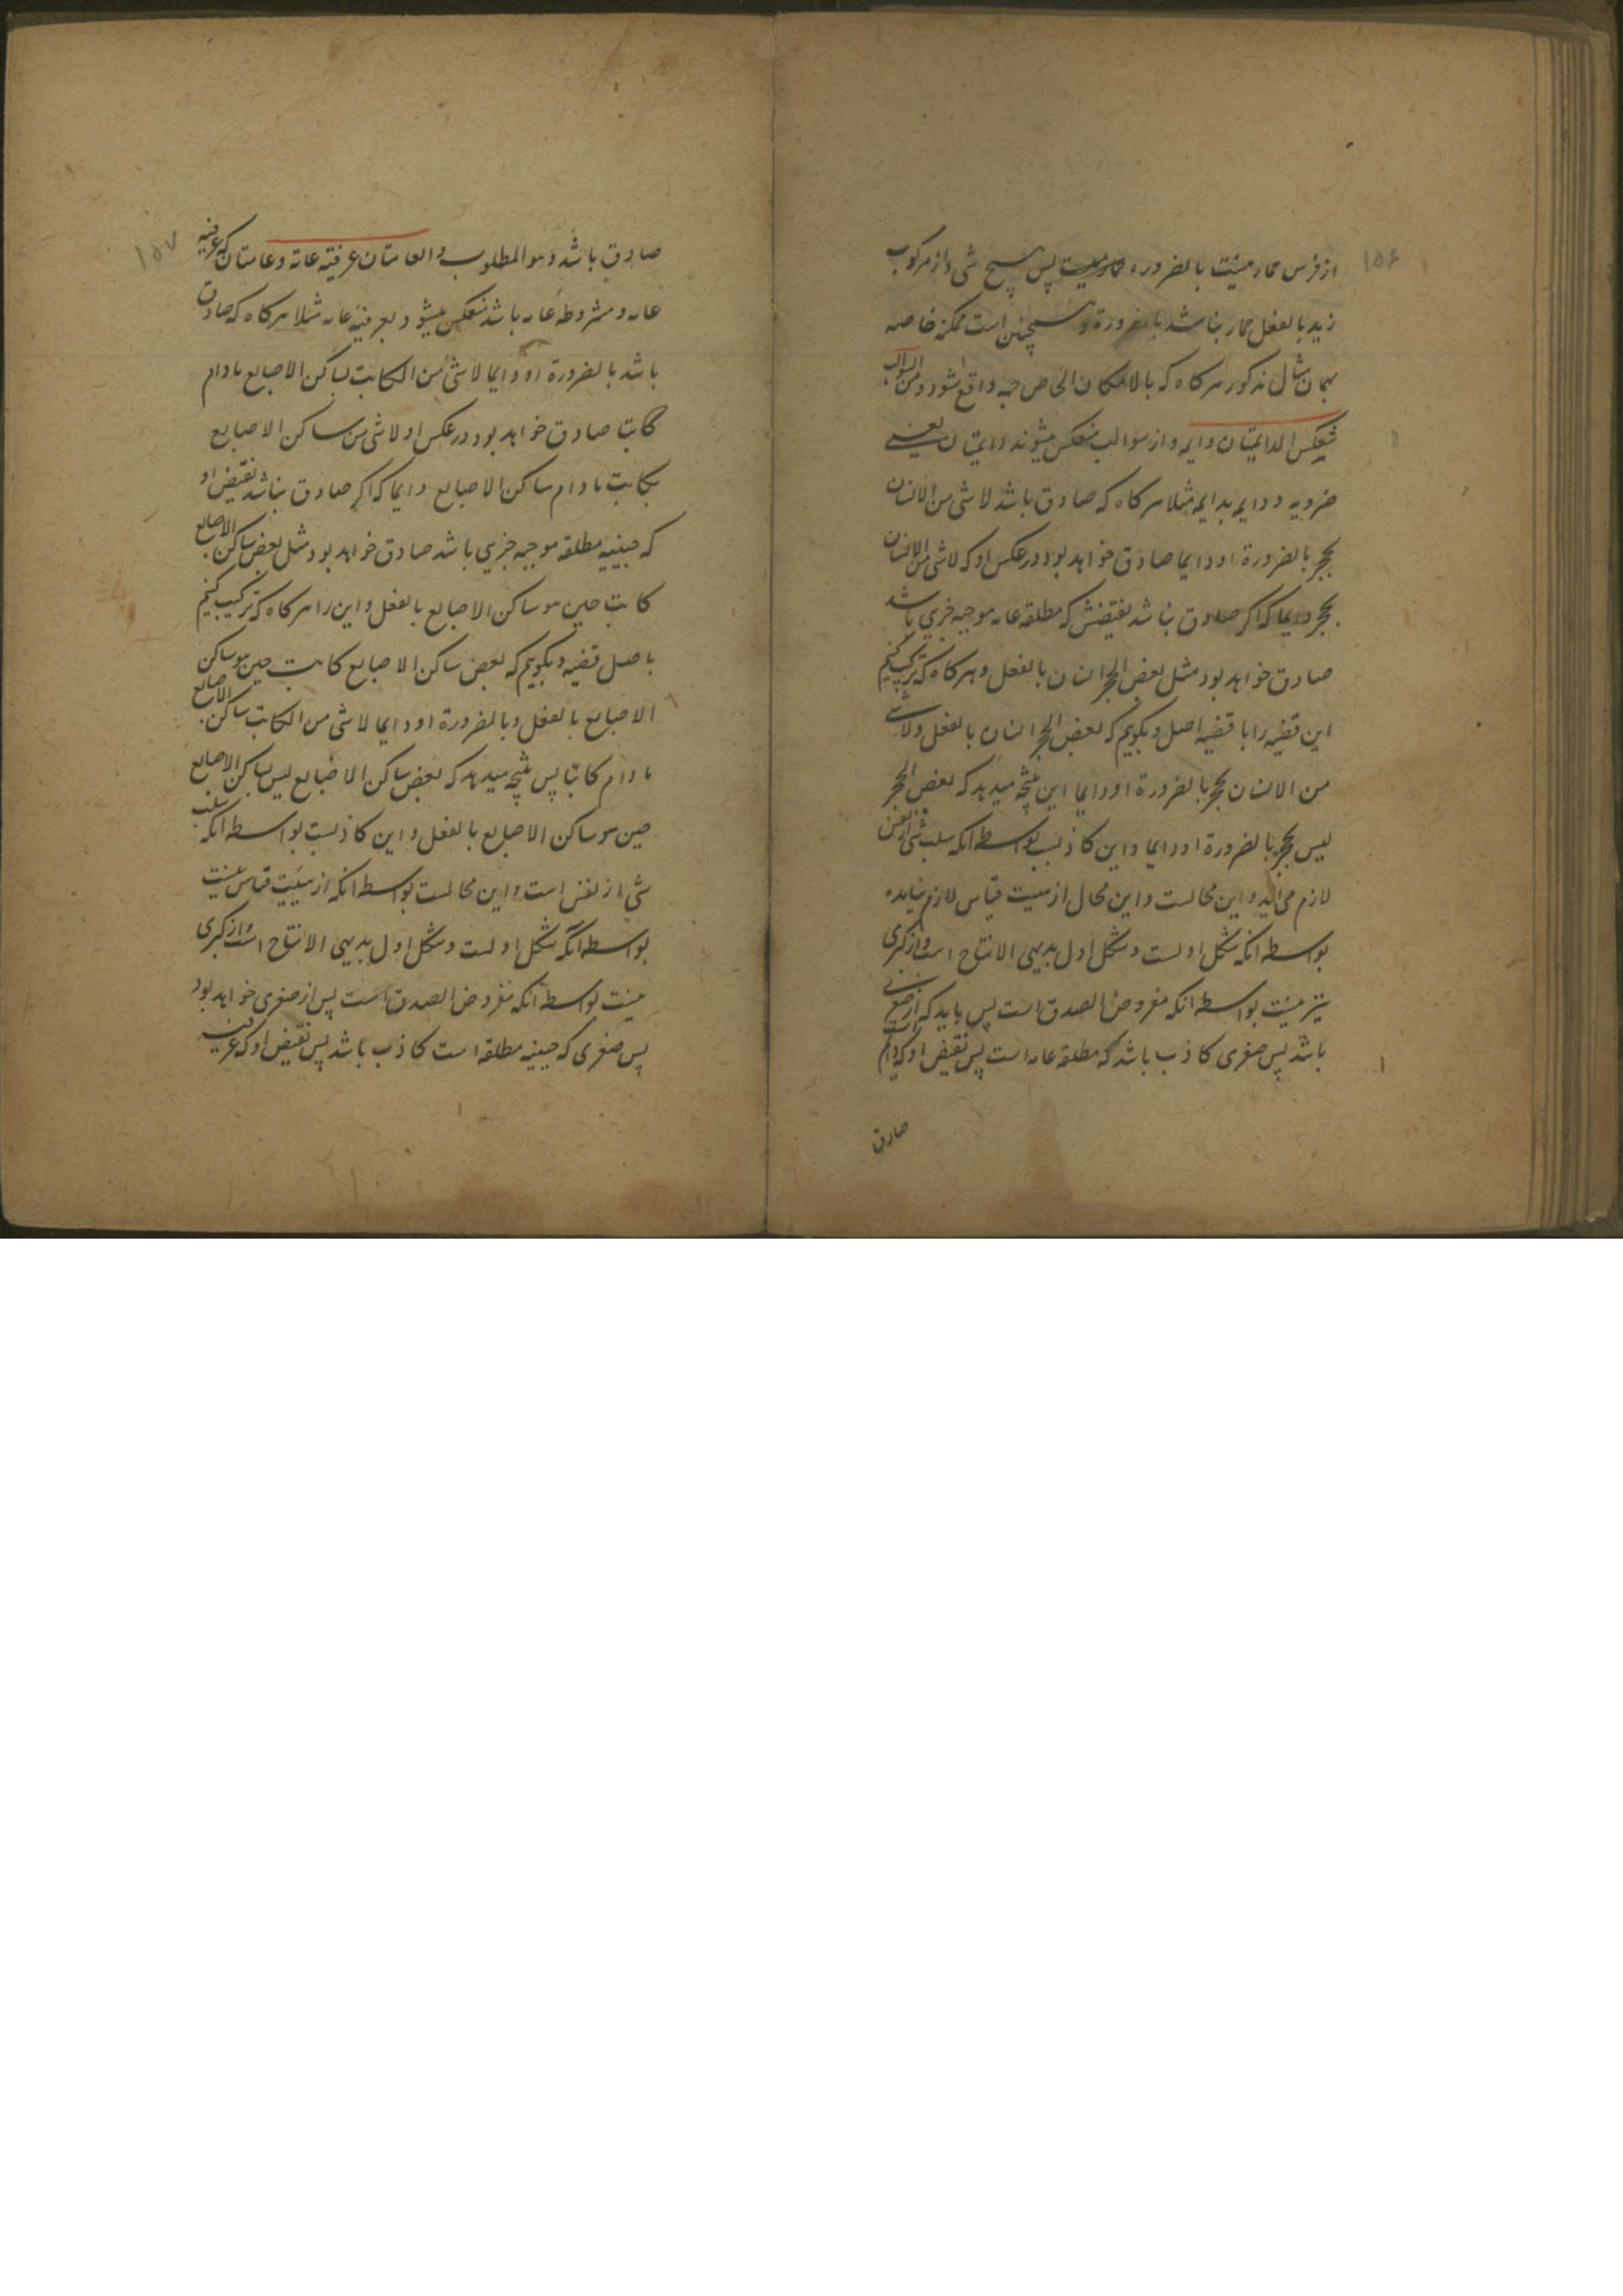 ۱۵۶
از فرس حمار نیست بالضروره پس هیچ شی از مرکوب
زید بالفعل حمار نباشد بالضرورة و همچنین است ممکنه خاصه
بهمان مثال مذکور هرکاه که بالامکان الخاص جهه واقع شود و من السوالب
تنعکس الدایمتان دایمه و از سوالب منعکس میشوند دایمتان یعنی
ضروریه و دایمه بدایمه مثلا هرکاه که صادق باشد لا شی من الانسان
بحجر بالضرورة او دایما صادق خواهد بود در عکس او که لا شی من الانسان
بحجر دایما که اکر صادق نباشد نقیضش که مطلقه عامه موجبه جزیی باشد
صادق خواهد بود مثل بعض الحجر انسان بالفعل و هرکاه که ترکیب کنیم
این قضیه را با قضیه اصل و بکوییم که بعض الحجر انسان بالفعل و لا شی
من الانسان بحجر بالضرورة او دایما این نتیجه میدهد که بعض الحجر
لیس بحجر بالضرورة او دایما و این کاذبست بواسطه انکه سلب شی از نفس
لازم می اید و این محالست و این محال از هیئت قیاس لازم نیاید
بواسطه انکه شکل اولست و شکل اول بدیهی الانتاج است و از کبری
نیز نیست بواسطه انکه مفروض الصدق است پس باید که از صغری
باشد پس صغری کاذب باشد که مطلقه عامه است پس نقیض او که دایمه است
صادق
۱۵۷
صادق باشد و هو المطلوب و العامتان عرفیة عامة و عامتان که عرفیه
عامه و مشروطه عامه باشد منعکس میشود بعرفیه عامه مثلا هرکاه که صادق
باشد بالضرورة او دایما لا شی من الکاتب بساکن الاصابع مادام
کاتبا صادق خواهد بود در عکس او لا شی من ساکن الاصابع
بکاتب مادام ساکن الاصابع دایما که اکر صادق نباشد نقیض او
که حینیه مطلقه موجبه جزیی باشد صادق خواهد بود مثل بعض ساکن الاصابع
کاتب حین هو ساکن الاصابع بالفعل و این را هرکاه که ترکیب کنیم
باصل قضیه و بکوییم که بعض ساکن الاصابع کاتب حین هو ساکن
الاصابع بالفعل و بالضرورة او دایما لا شی من الکاتب بساکن الاصابع
مادام کاتبا پس نتیجه میدهد که بعض ساکن الاصابع لیس بساکن الاصابع
حین هو ساکن الاصابع بالفعل و این کاذبست بواسطه انکه سلب
شی از نفس است و این محالست بواسطه انکه از هیئت قیاس نیست
بواسطه انکه شکل اولست و شکل اول بدیهی الانتاج است و از کبری
نیست بواسطه انکه مفروض الصدق است پس از صغری خواهد بود
پس صغری که حینیه مطلقه است کاذب باشد پس نقیض او که عرفیه